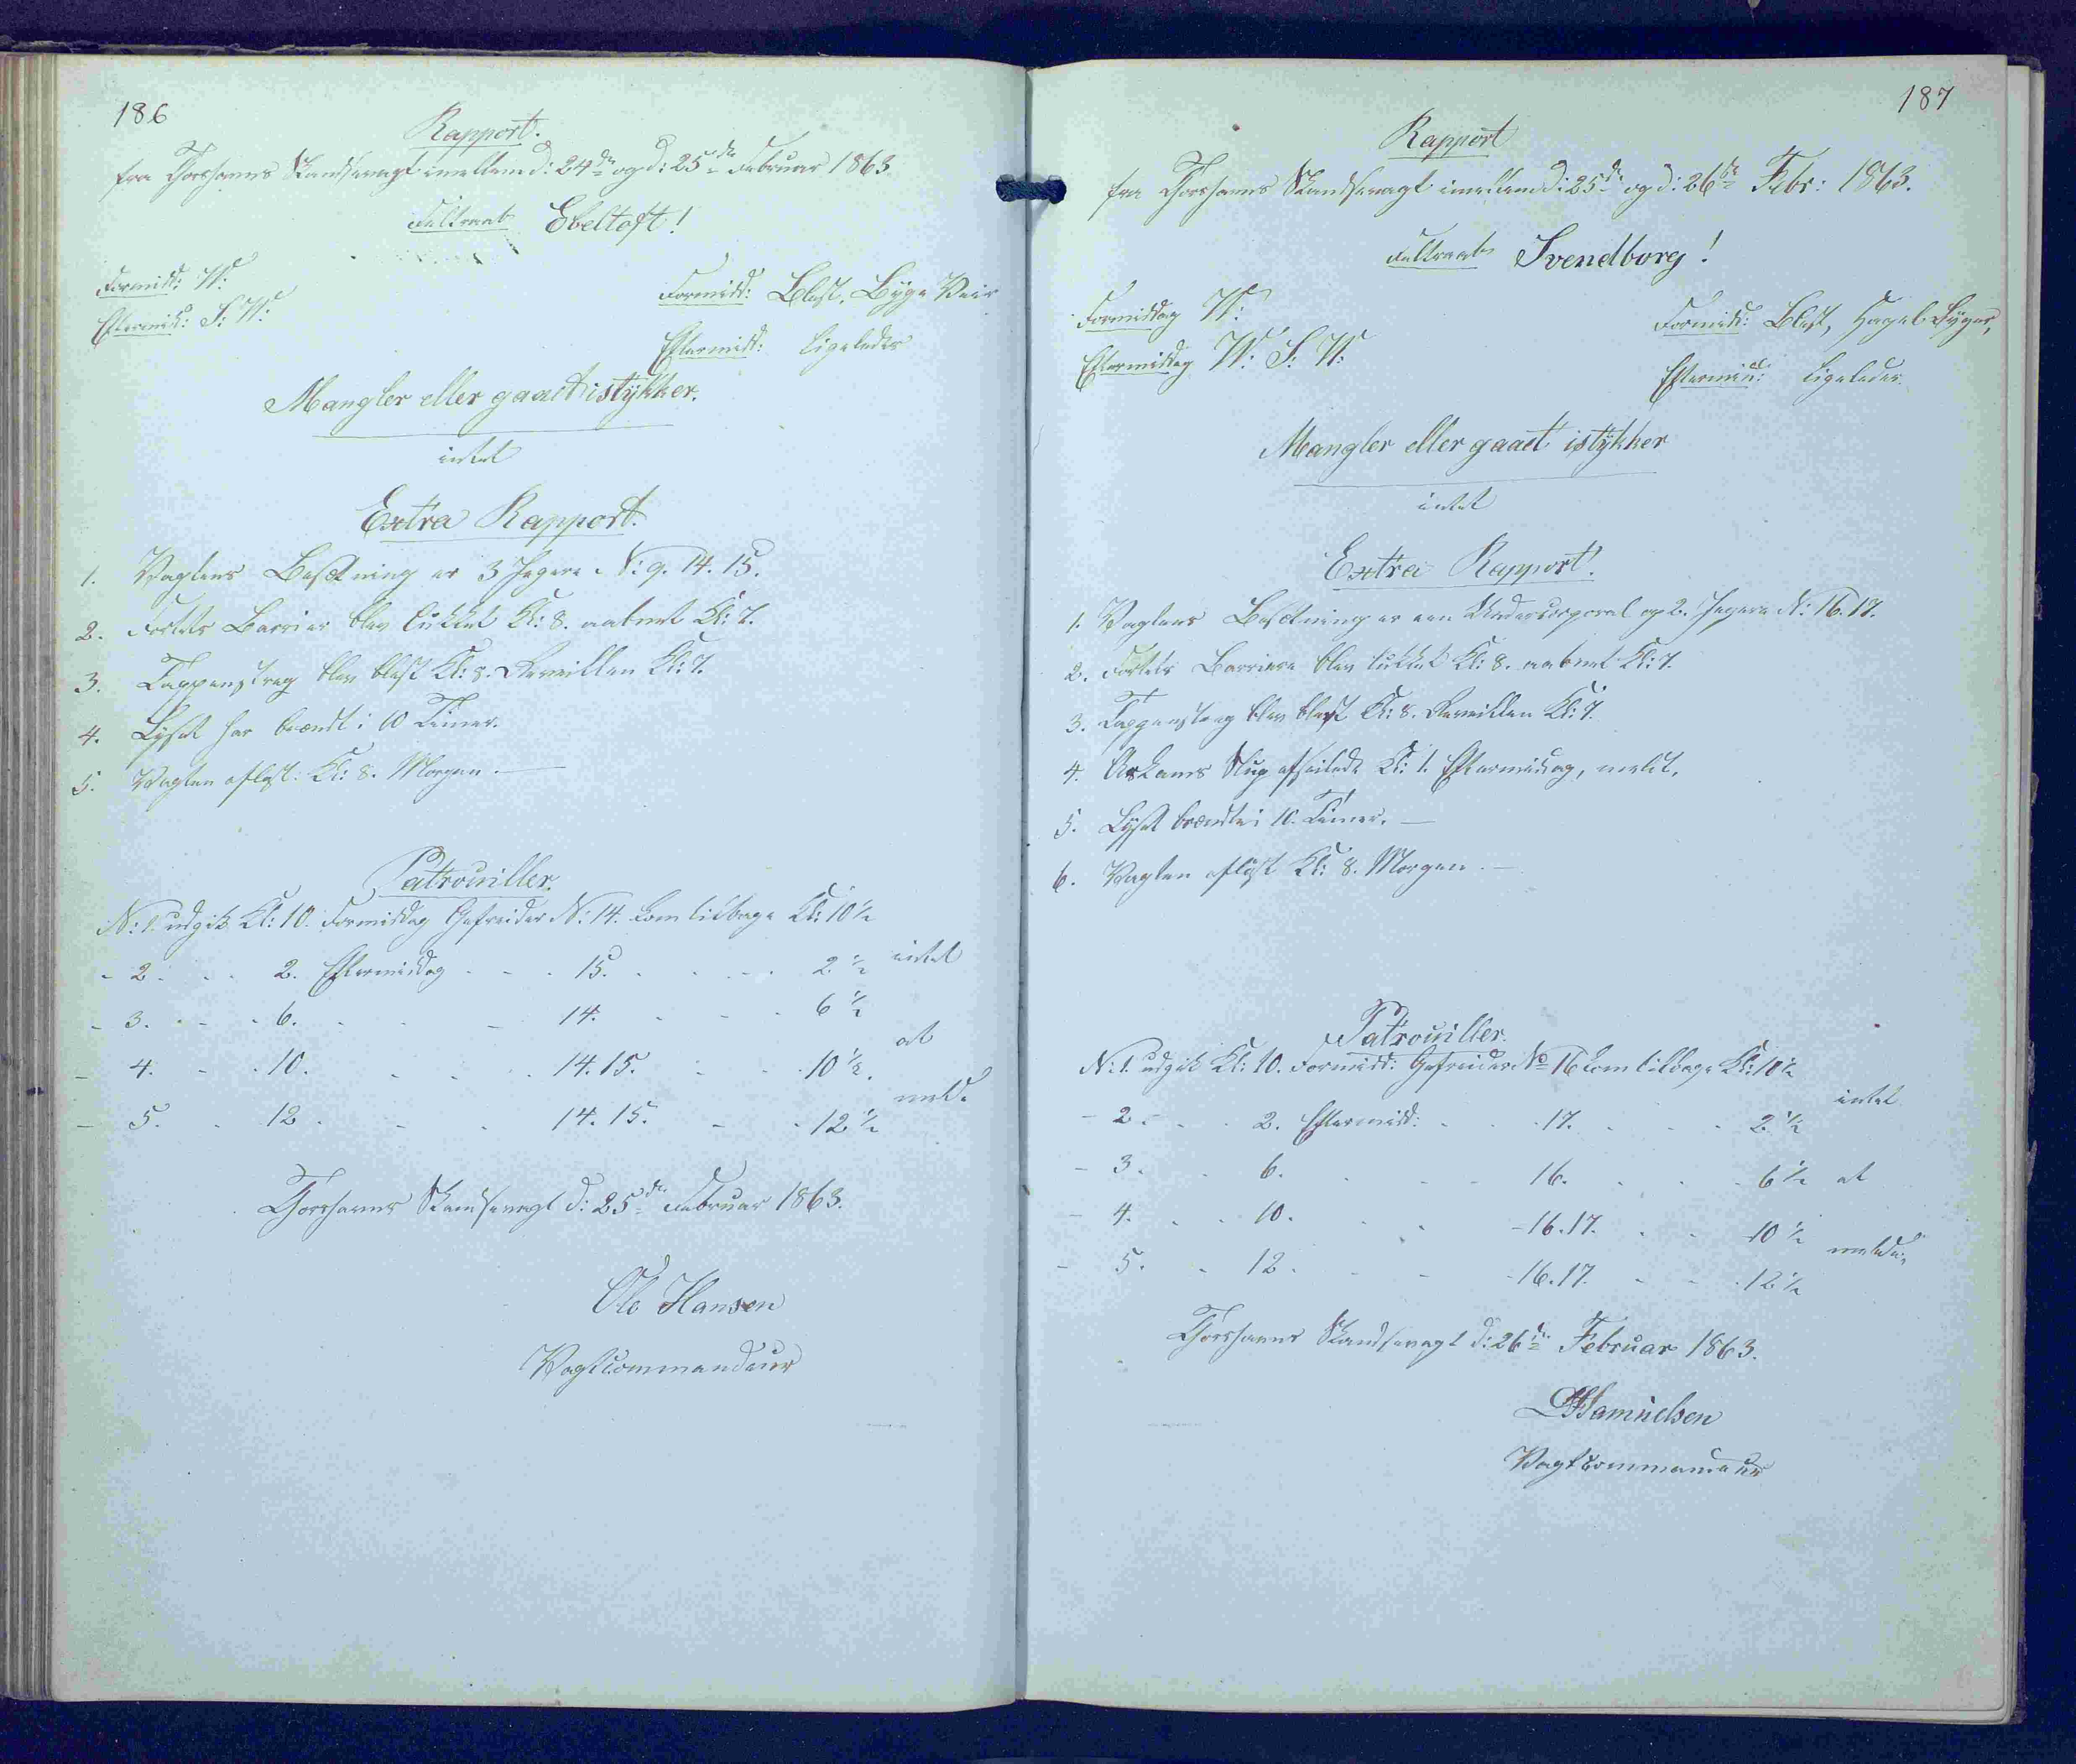 186
Rapport.
fra Thorshavns Skandsevagt imellem d: 24de og d: 25de Februar 1863
Feltraab Ebeltoft!
Formidd: W:
Formidd: Blæst, Byge Veir
Eftermid: S: W:
Eftermidd: ligeledes
Mangler eller gaaet istÿkker.
intet
Extra Rapport.
1. Vagtens Besætning er 3 Jægere N: 9. 14. 15.
2. Fortets Barrier blev lukket Kl: 8. aabnet Kl: 7.
3. Tappenstreg blev blæst Kl: 8. Reveillen Kl: 7.
4. Lyset har brændt i 10 Timer.
5. Vagten afløst: Kl: 8. Morgen. —
Patrouiller.
N: 1. udgik Kl: 10. Formiddag Gefreider N: 14. kom tilbage Kl: 10 1/2
- 2. - - 2. Eftermiddag - - - 15. - - - - 2 1/2 intet
- 3. - - - 6. - - - 14. - - - 6 1/2
at
- 4. - - 10. - - - 14. 15. - - - 10 1/2.
meld.
- 5. - 12. - - 14. 15. - - 12 1/2
Thorshavns Skandsevagt d: 25de Februar 1863.
Ole Hansen
Vagtcommandeur
187
Rapport
fra Thorshavns Skandsevagt imellem d: 25de og d: 26de Febr: 1863.
Feltraab Svendborg!
Formiddag W:
Formidd: Blæst, Hagel Byger,
Eftermiddag W: S: W:
Eftermidd: ligeledes.
Mangler eller gaaet istÿkker
intet
Extra Rapport!
1. Vagtens Besætning er een Undercorporal og 2. Jægere N: 16. 17.
2. Fortets Barriere blev lukket Kl: 8. aabnet Kl: 7.
3. Tappenstreg blev blæst Kl: 8. Reveillen Kl: 7.
4. Slup afseilede Kl: 1. Eftermiddag, meldt.
5. Lyset brændte i 10. Timer. —
6. Vagten afløst Kl: 8. Morgen. —
Patrouiller.
N: 1. udgik Kl: 10. Formidd: Gefreider No 16 kom tilbage Kl: 10 1/2
intet
- 2. - - 2. Eftermidd: - - 17. - - - 2 1/2
- 3. - 6. - - - 16. - - - 6 1/2 at
- 4. - - 10. - - - 16. 17. - - 10 1/2 melde,
- 5. - 12. - - - 16. 17. - - 12 1/2
Thorshavns Skandsevagt d: 26de Februar 1863.
Samuelsen
Vagtcommandeur